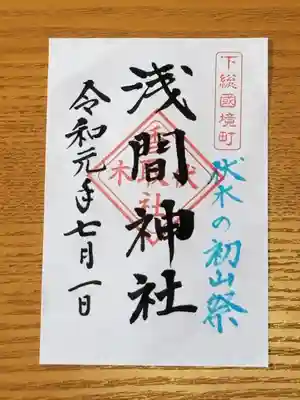 下総國境町
伏木の初山祭
浅間神社
令和元年七月一日
伏木